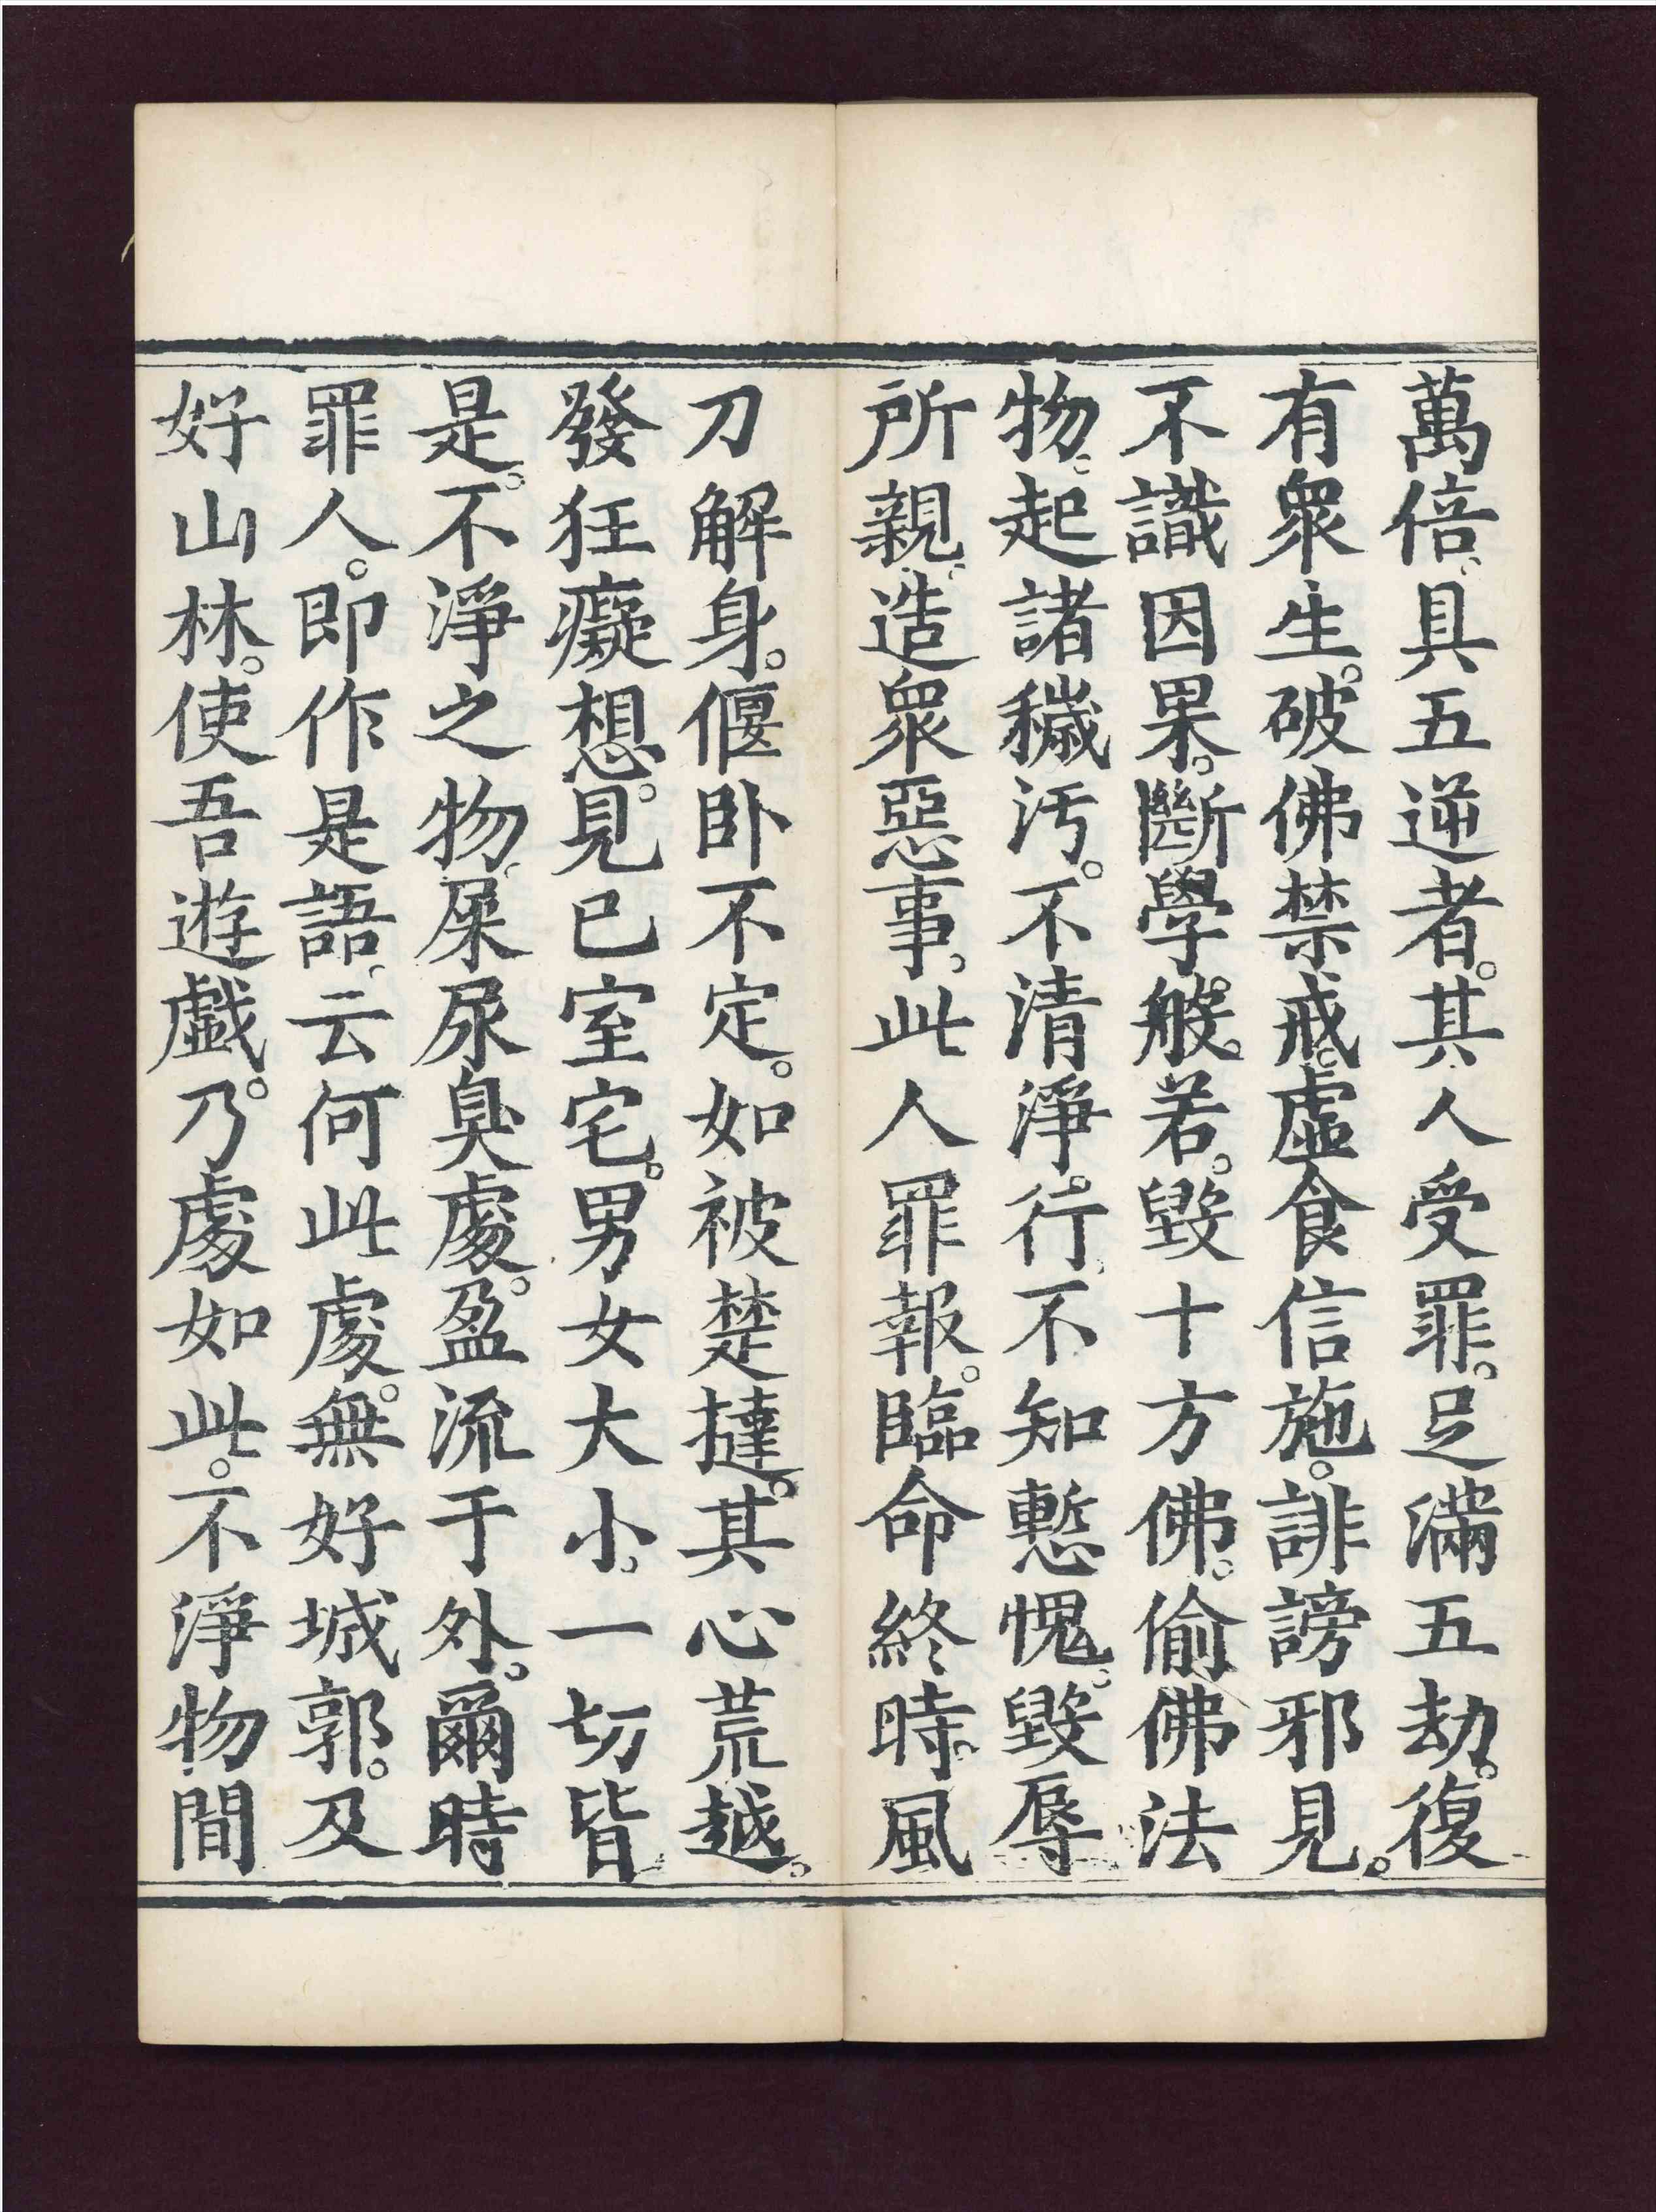 萬倍、具五逆者。其人受罪。足滿五劫。復
有衆生。破佛禁戒。虛食信施。誹謗邪見。
不識因果。斷學。般。若。毀十方佛。偷佛法
物。起諸穢汚。不清淨。行、不知慙愧。毀辱
所親、造衆惡事、此人罪報。臨命終時、風
刀解身。偃卧不定。如被楚撻。其心荒越。
發狂癡想。見已室宅。男女大小、一切皆
是。不淨之物、屎尿臭處。盈流于外。爾時
罪人。即作是語、云何此處。無好城郭。及
好山林。使吾遊戯。乃處如此。不淨物間